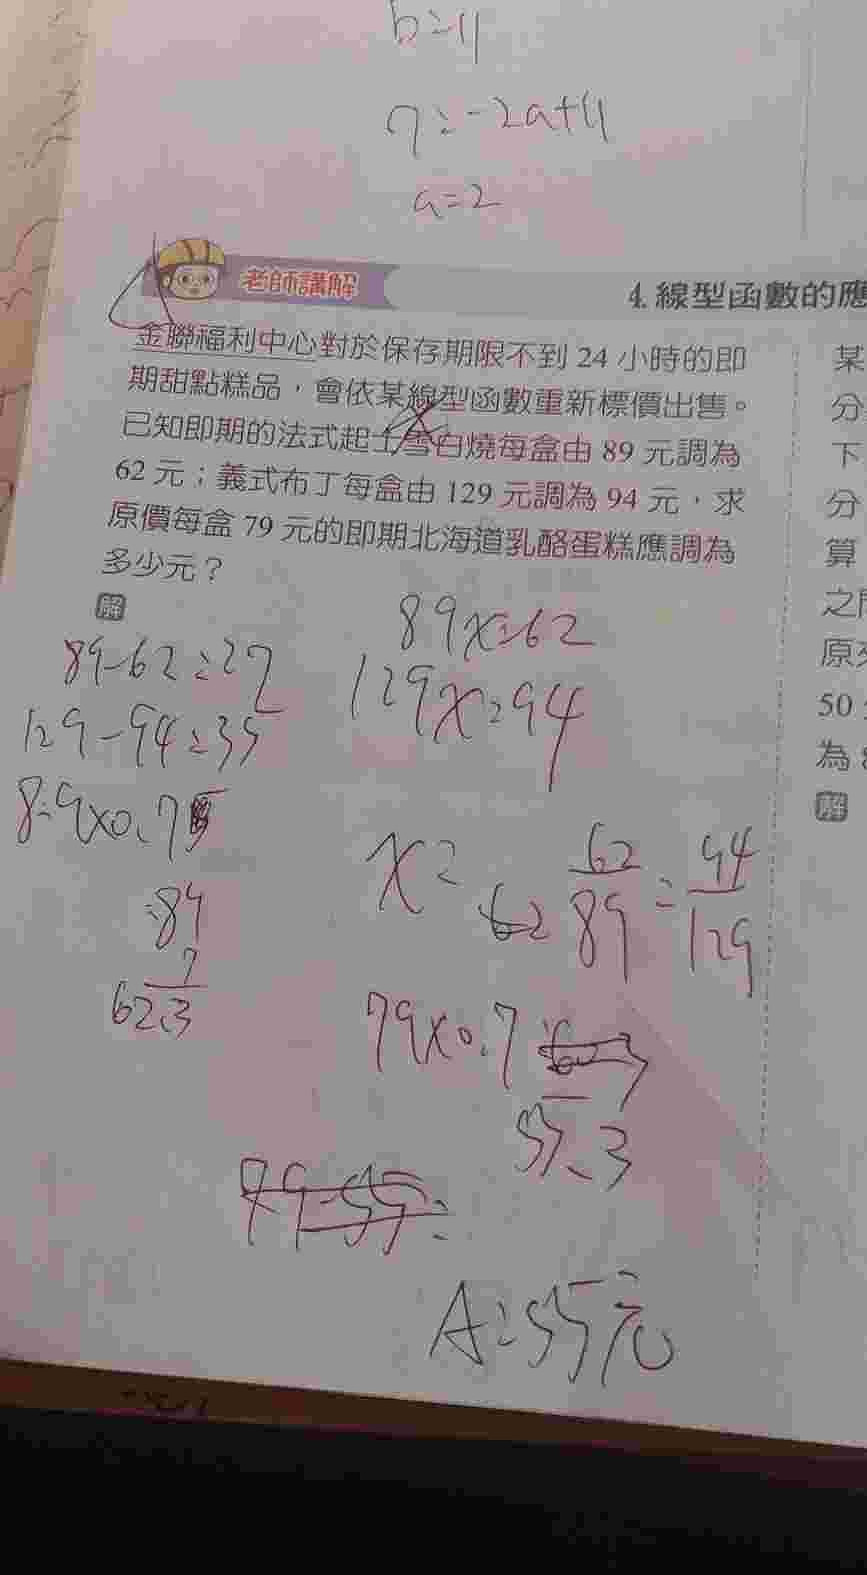 b=11
7=-2a+11
a=2
老師講解
4. 線型函數的應
金聯福利中心對於保存期限不到 24 小時的即
期甜點糕品,會依某線型函數重新標價出售。
已知即期的法式起士雪白燒每盒由 89 元調為
62 元;義式布丁每盒由 129 元調為 94 元,求
原價每盒 79 元的即期北海道乳酪蛋糕應調為
多少元?
解
89-62=27
129-94=35
89x=62
129x=94
8.9x0.7
89
7
62.3
x=
62
89
=
94
129
79x0.7
55.3
79-55=
A=55元
某
分
下
分
算
之
原
50
為
解